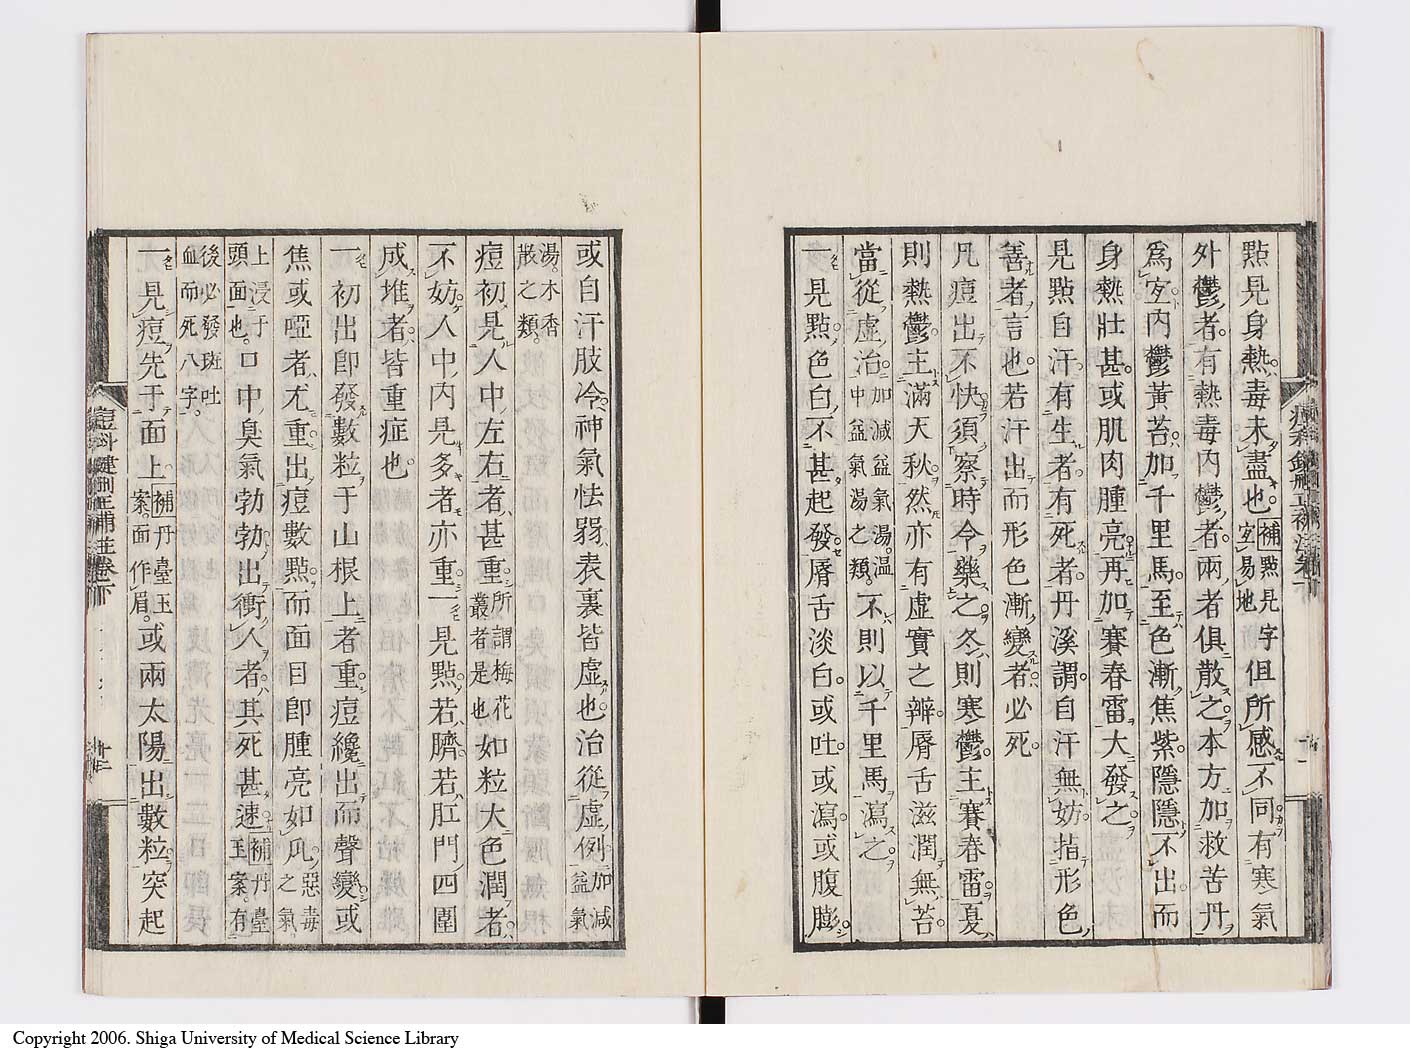 點見身熱毒未盡也補點見字但所感不同有寒氣
実易地
外鬱者有熱毒內鬱者兩者俱散之本方加救苦丹
爲実內鬱黃苔加千里馬至色漸焦紫隱隱不出而
身熱壯甚或肌肉腫亮再加賽春雷大發之
見點自汗有生者有死者丹溪謂自汗無妨指形色
善者言也若汗出而形色漸變者必死
凡痘出不快須察時令藥之冬則寒鬱主賽春雷夏
則熱鬱主滿天秋然亦有虛實之辨脣舌滋潤無苔
當從虛治加減益氣湯溫
中益氣湯之類不則以千里馬瀉之
一見點色白不甚起發脣舌淡白或吐或瀉或腹膨
或自汗肢冷神氣怯弱表裏皆虛也治從虛例加減
益氣
湯木香
散之類
痘初見人中左右者甚重所謂梅花
叢者是也如粒大色潤者
不妨人中內見多者亦重一見點若臍若肛門四圍
成堆者皆重症也
一初出卽發數粒于山根上者重痘纔出而聲變或
焦或啞者尤重出痘數點而面目卽腫亮如瓜惡毒
之氣
上浸于
頭面也口中臭氣勃勃出衝人者其死甚速補丹臺
玉案有
後必發斑吐
血而死八字
一見痘先于面上補丹臺玉
案面作眉或兩太陽出數粒突起
痘科鍵刪正補註卷下
十二
Copyright 2006. Shiga University of Medical Science Library